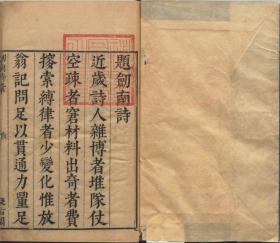 題劍南詩
近歲詩人雜博者堆隊仗
空疎者窘材料出奇者費
搜索縛律者少變化惟放
翁記問足以貫通力量足